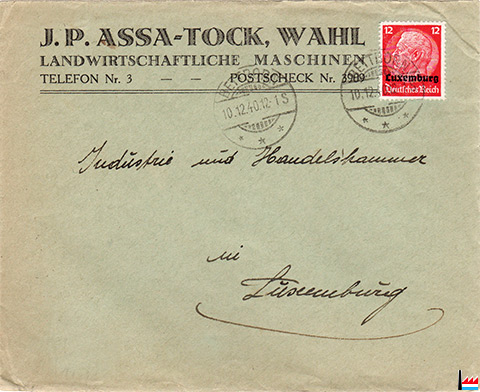 J. P. ASSA-TOCK, WAHL
LANDWIRTSCHAFTLICHE MASCHINEN
TELEFON Nr. 3 — — POSTSCHECK Nr. 3909
12 12
Luxemburg
Deutsches Reich
10.12.40.12-1 S
10.12.4
Industrie und Handelskammer
in
Luxemburg